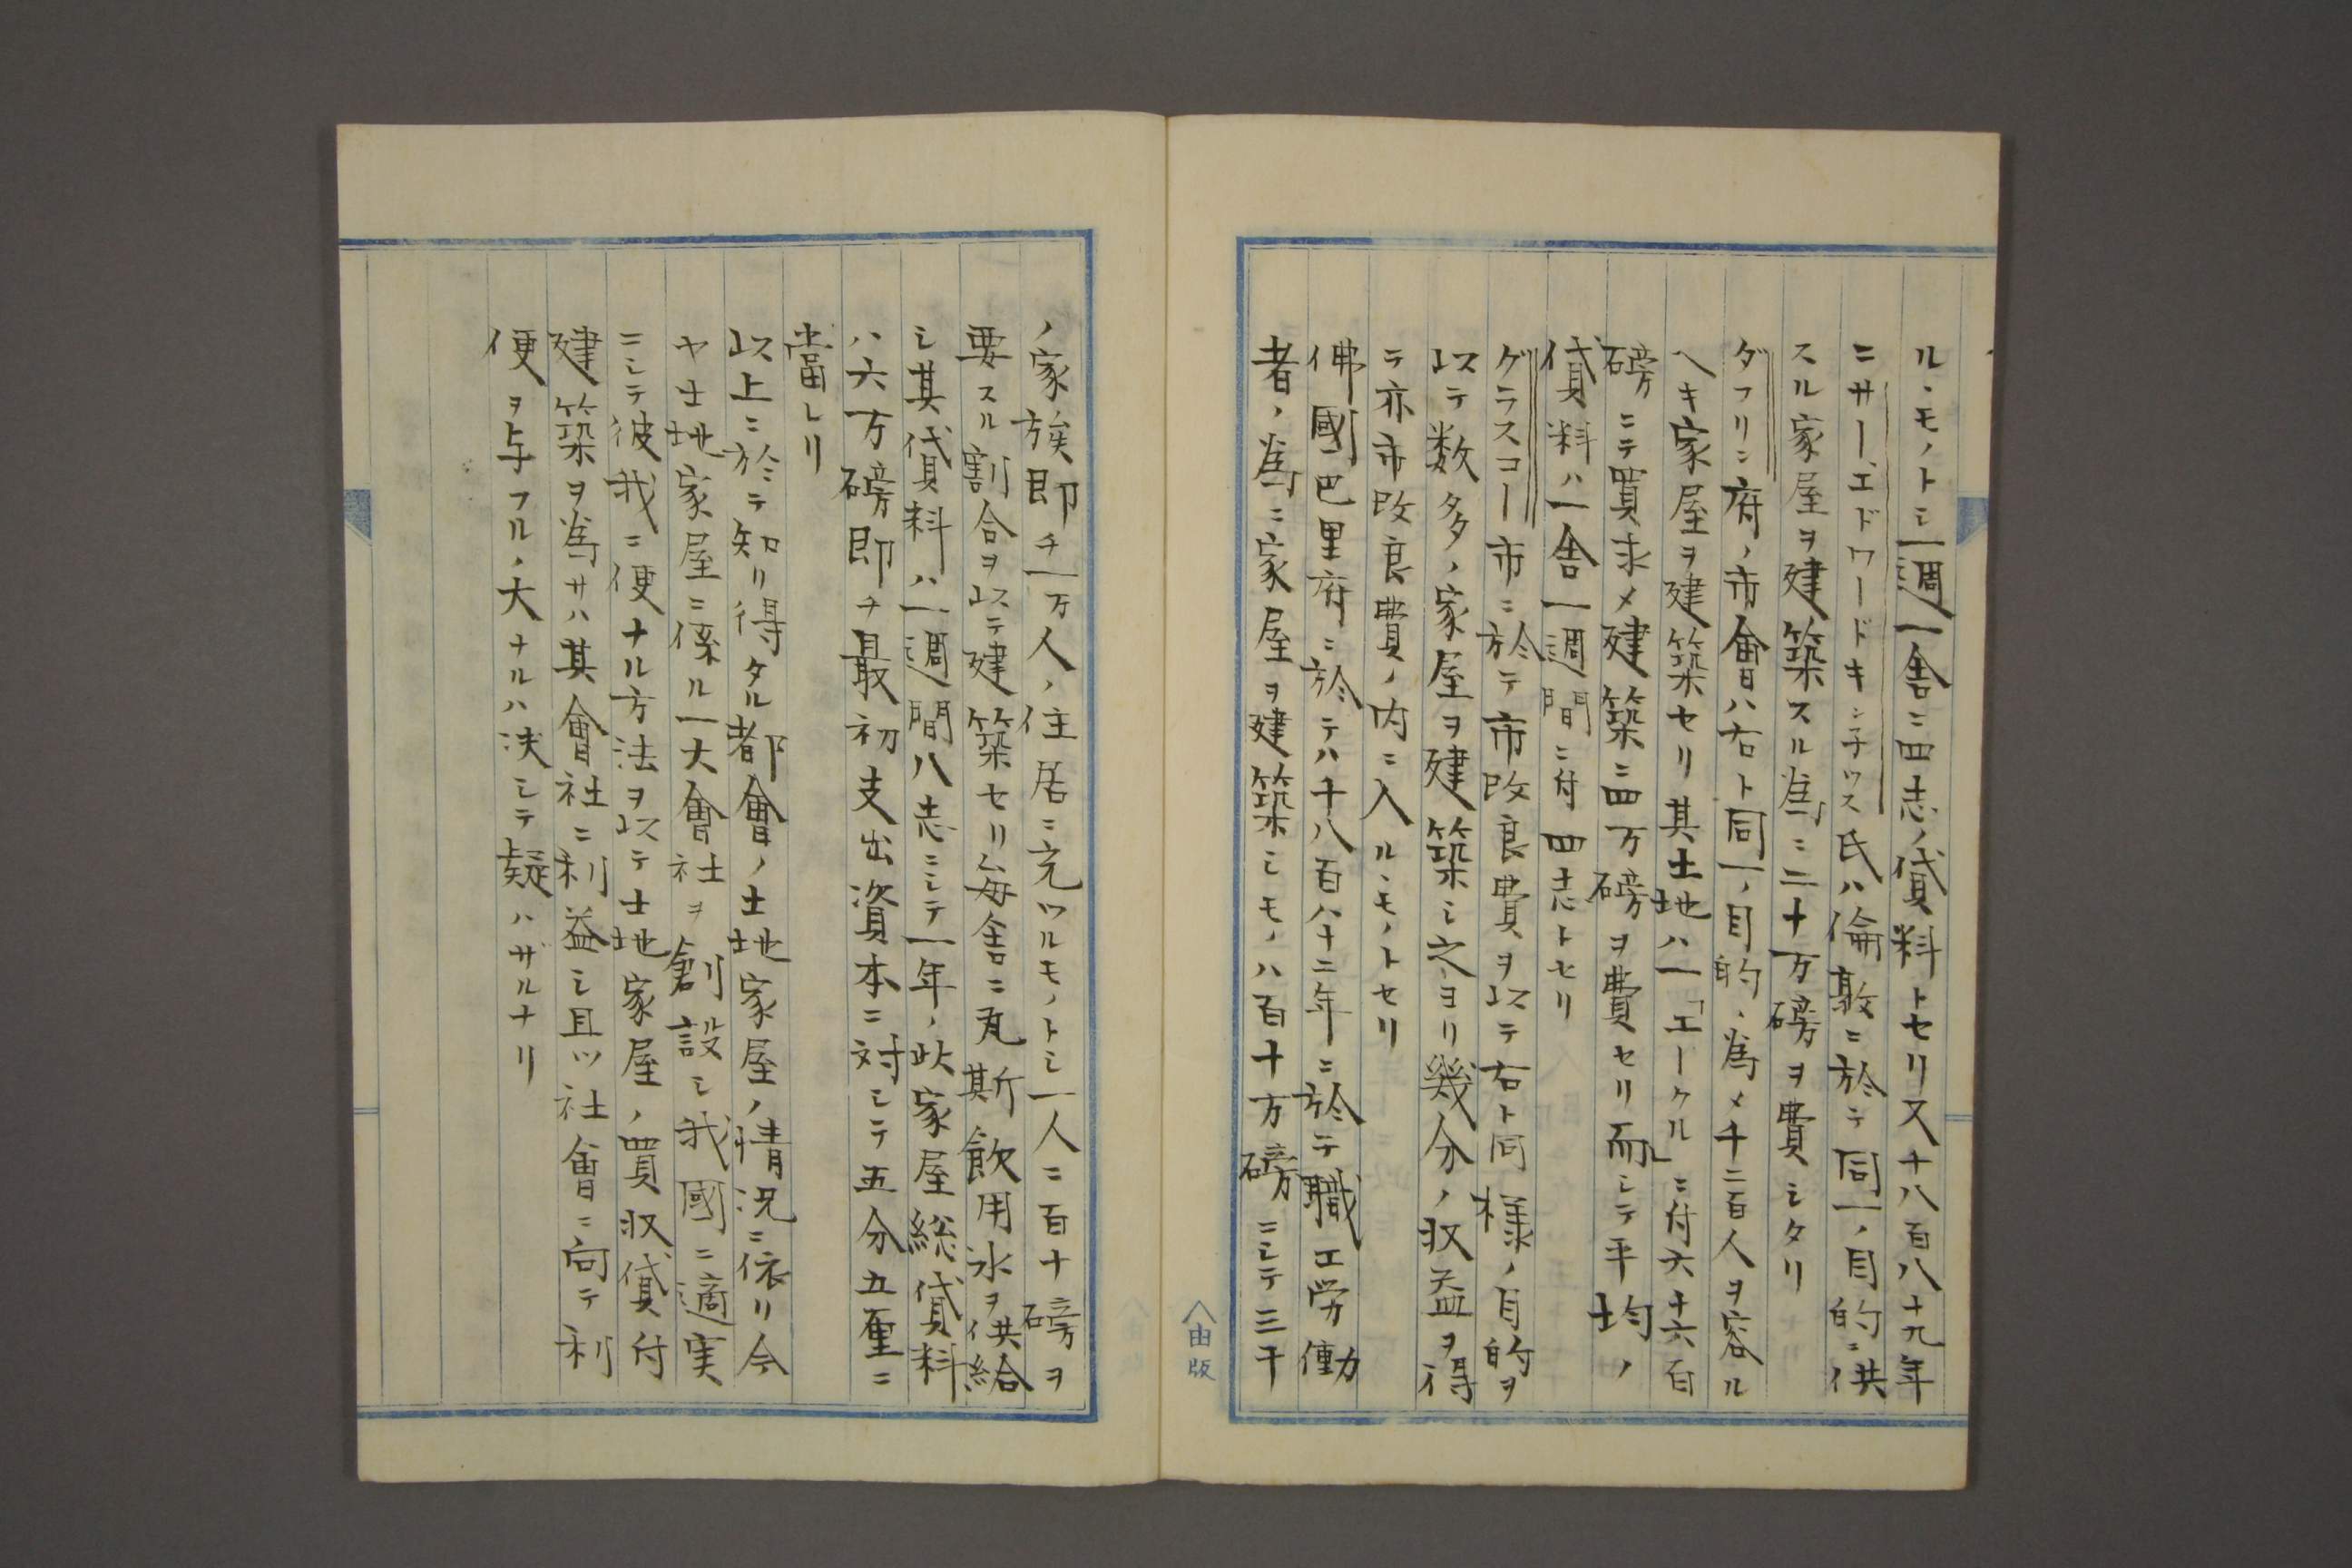 ルヽモノトシ一週一舎ニ四志ノ貸料トセリ又十八百八十九年
ニサーエドワードキンチウス氏ハ倫敦ニ於テ同一ノ目的ニ供
スル家屋ヲ建築スル為ニ二十万磅ヲ費シタリ
ダフリン府ノ市會ハ右ト同一ノ目的ノ為メ千二百人ヲ容ル
ヘキ家屋ヲ建築セリ其土地ハ一「エークル」ニ付六十六百
磅ニテ買求メ建築ニ四万磅ヲ費セリ而シテ平均ノ
貸料ハ一舎一週間ニ付四志トセリ
グラスコー市ニ於テ市改良費ヲ以テ右ト同様ノ目的ヲ
以テ数多ノ家屋ヲ建築シ之ヨリ幾分ノ収益ヲ得
テ亦市改良費ノ内ニ入ルヽモノトセリ
佛國巴里府ニ於テハ千八百八十二年ニ於テ職工労働
者ノ為ニ家屋ヲ建築シモノハ百十万磅ニシテ三千
ノ家族即チ一万人ノ住居ニ充ツルモノトシ一人ニ百十磅ヲ
要スル割合ヲ以テ建築セリ毎舎ニ瓦斯飲用水ヲ供給
シ其貸料ハ一週間八志ニシテ一年ノ此家屋総貸料
ハ六万磅即チ最初支出資本ニ対シテ五分五厘ニ
當レリ
以上ニ於テ知リ得タル都會ノ土地家屋ノ情況ニ依リ今
ヤ土地家屋ニ係ル一大會社ヲ創設シ我國ニ適実
ニシテ彼我ニ便ナル方法ヲ以テ土地家屋ノ買収貸付
建築ヲ為サハ其會社ニ利益シ且ツ社會ニ向テ利
便ヲ与フルノ大ナルハ决シテ疑ハザルナリ
由版